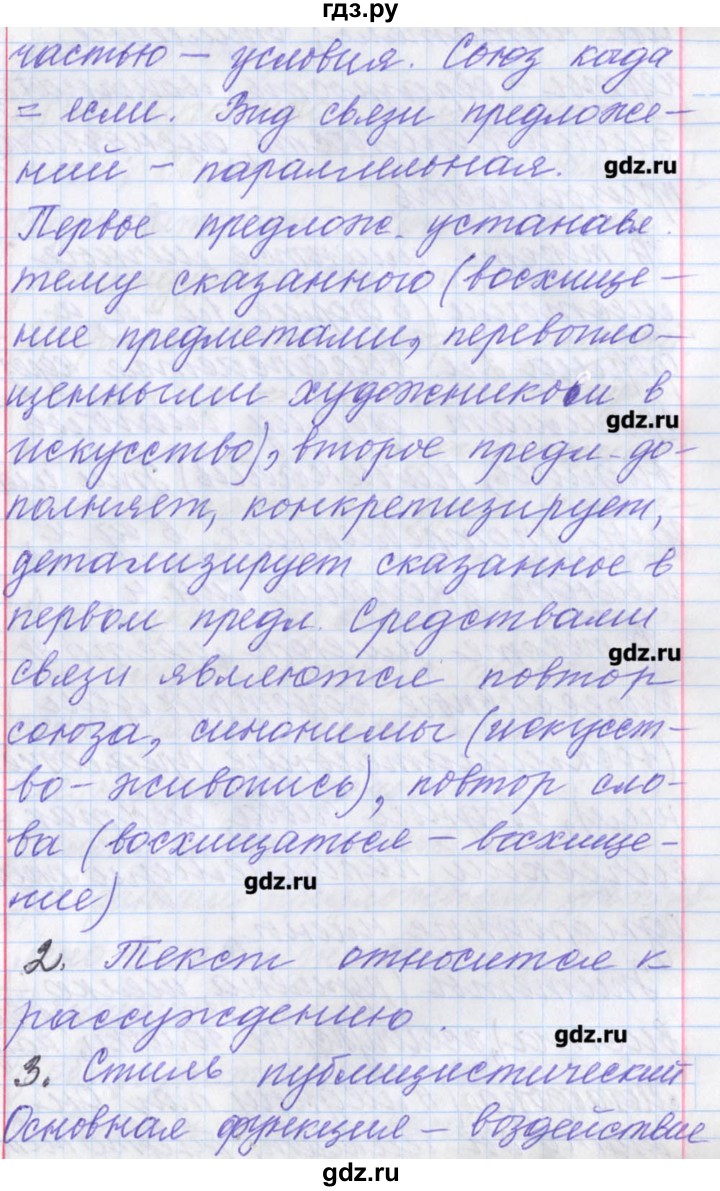 гдз.ру
частью – условия. Союз когда
= если. Вид связи предложе-
ний – параллельная.
gdz.ru
Первое предлож. устанавл.
тему сказанного (восхище-
ние предметами, перевопло-
щенными художником в
gdz.ru
искусство), второе предл. до-
полняет, конкретизирует,
детализирует сказанное в
первом предл. Средствами
gdz.ru
связи являются повтор
союза, синонимы (искусст-
во – живопись), повтор сло-
ва (восхищаться – восхище-
ние)
gdz.ru
2. Текст относится к
рассуждению.
gdz.ru
3. Стиль публицистический
Основная функция – воздействие
gdz.ru